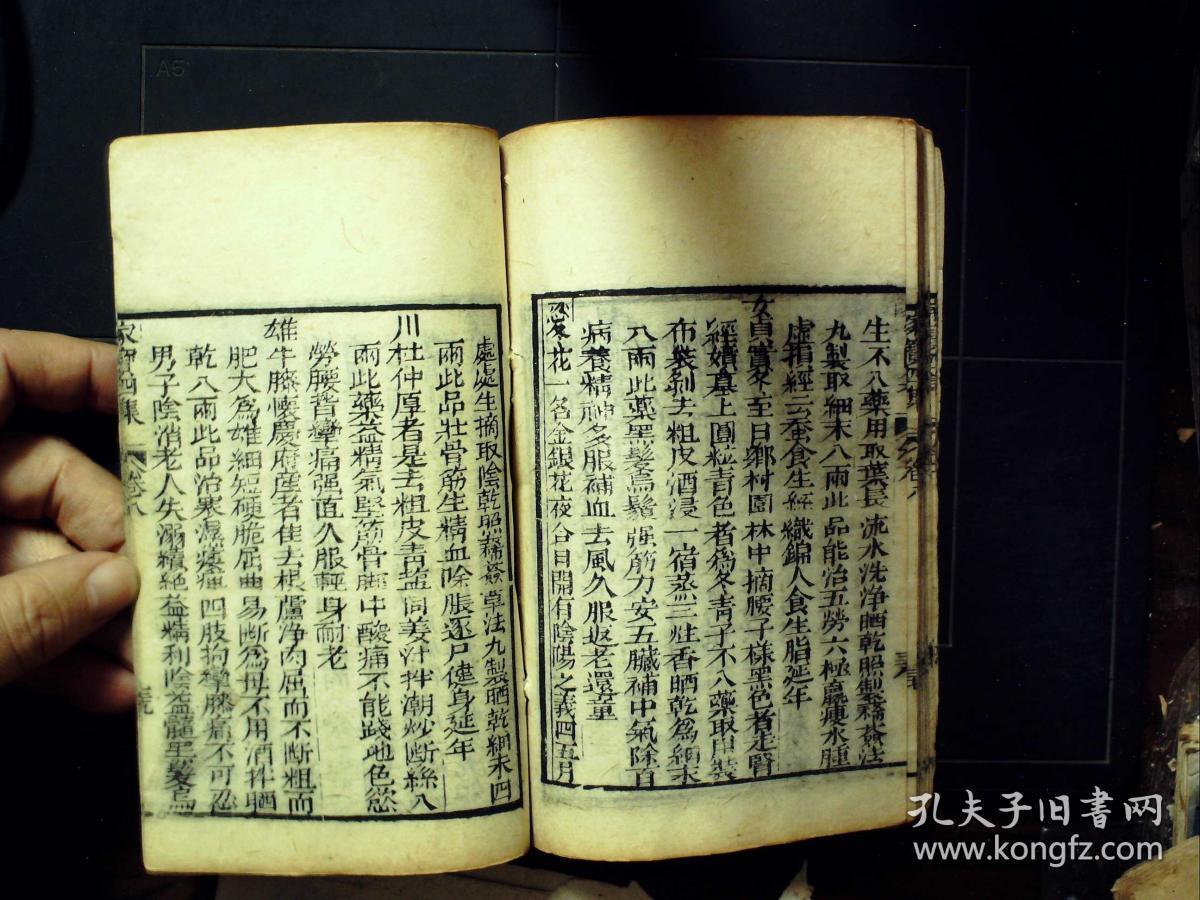 生不入藥用取葉長流水洗浄晒乾照製豨薟法
九製取細末八兩此品能治五勞六極羸瘦水腫
虛指經云蚕食生經織錦人食生脂延年
女貞實冬至日鄉村園林中摘腰子樣黑色者走腎
經墳墓上圓粒青色者為冬青子不入藥取用裝
布袋剥去粗皮酒浸一宿蒸三炷香晒乾為細末
八兩此藥黑髮烏鬚強筋力安五臟補中氣除百
病養精神多服補血去風久服返老還童
忍冬花一名金銀花夜合日開有陰陽之義四五月
處處生摘取陰乾照豨薟草法九製晒乾細末四
兩此品壯骨筋生精血除脹逐尸健身延年
川杜仲厚者是去粗皮青鹽同姜汁拌潮炒断絲八
兩此藥益精氣堅筋骨脚中酸痛不能踐地色慾
勞腰背攣痛强直久服輕身耐老
雄牛膝懷慶府産者佳去根蘆浄肉屈而不断粗而
肥大為雄細短硬脆屈曲易断為母不用酒拌晒
乾八兩此品治寒濕痿痺四肢拘攣膝痛不可忍
男子陰消老人失溺續絶益精利陰益髓黑髮烏
家寶四集
卷八
A5
孔夫子旧书网
www.kongfz.com